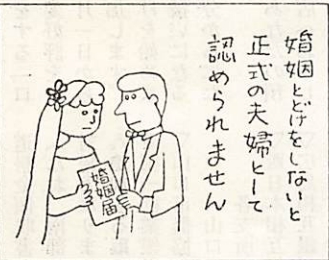 婚姻とどけをしないと
正式の夫婦として
認められません
婚姻届